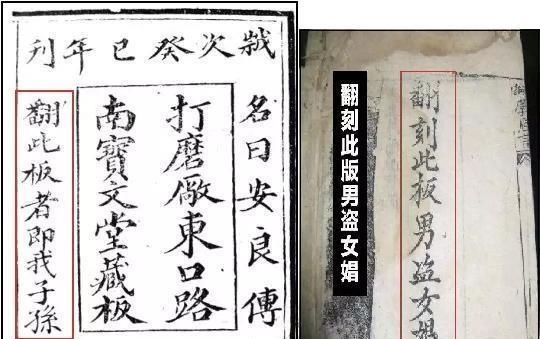 歲次癸巳年刊
名曰安良傳
打磨廠東口路
南寶文堂藏板
翻此板者即我子孫
翻刻此版男盗女娼
翻刻此板男盗女娼